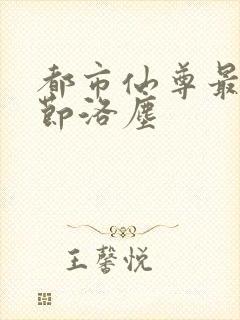 都市仙尊最
节洛尘
王馨悦